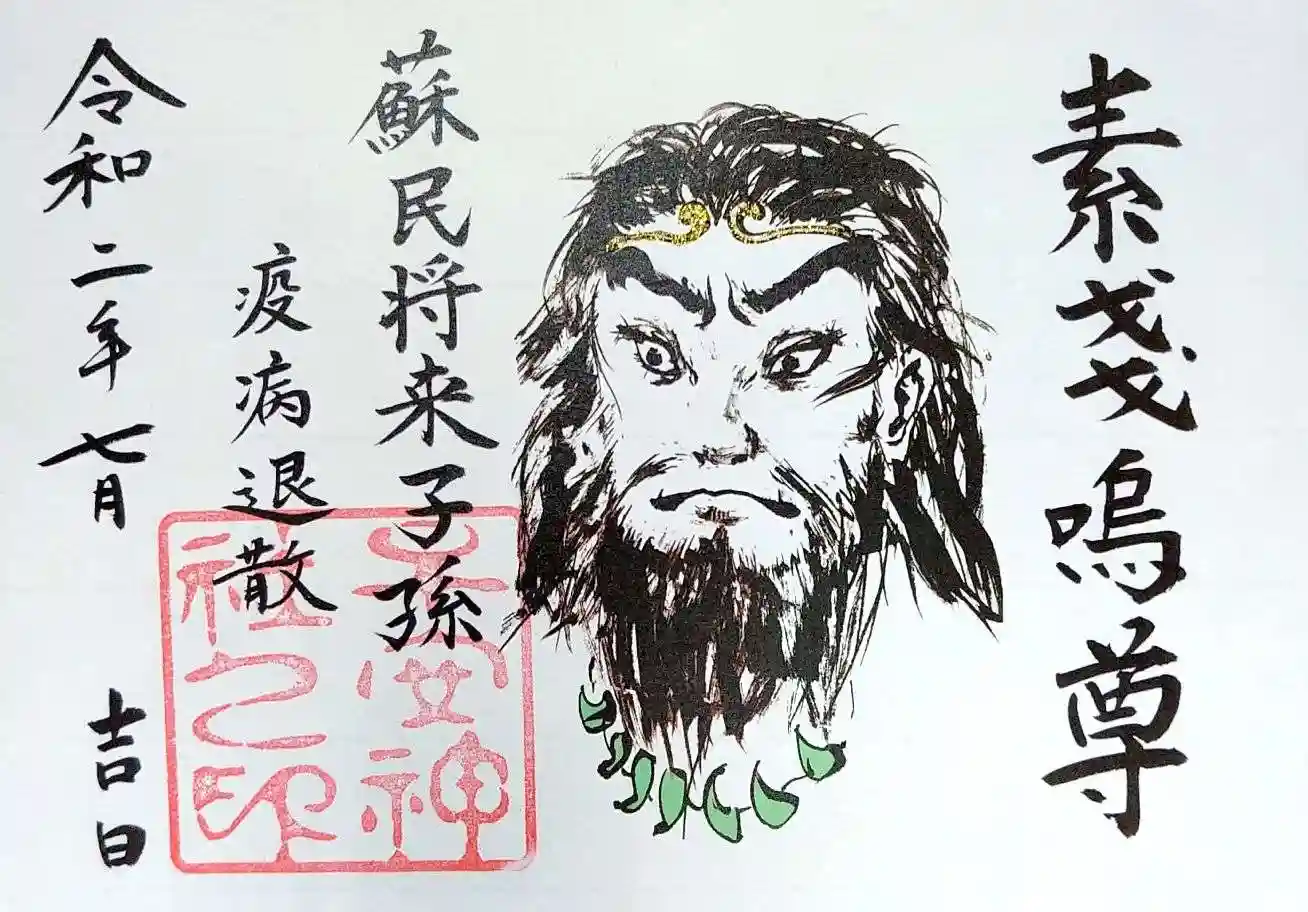 素戔嗚尊
蘇民将来子孫
疫病退散
令和二年七月 吉日
安神
社之印